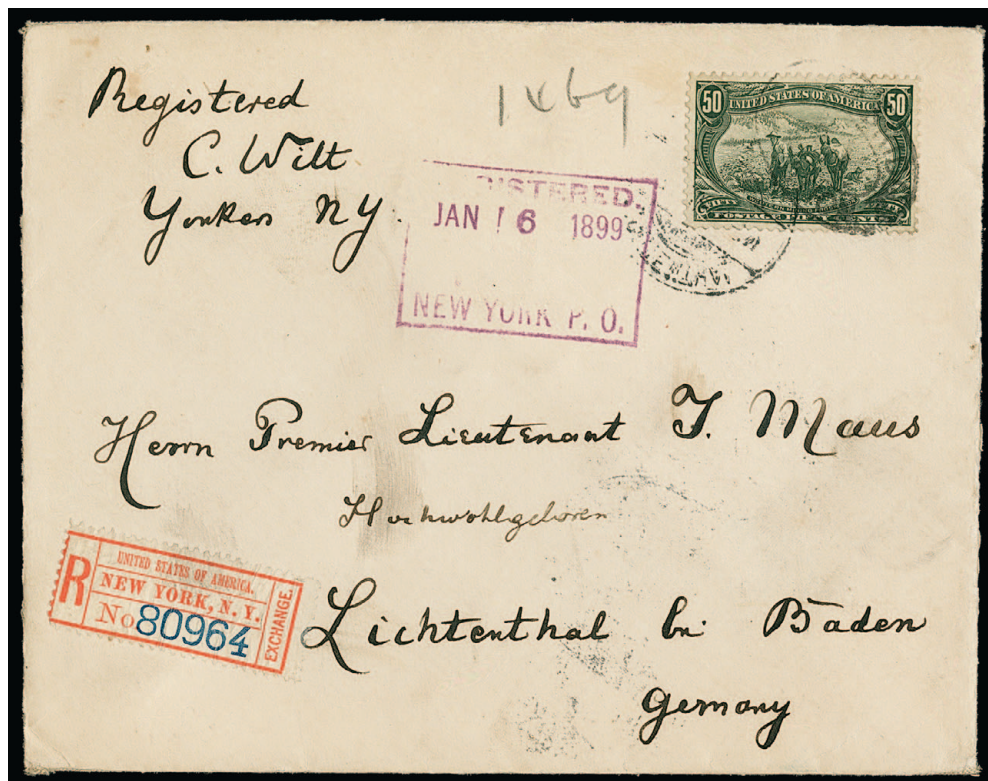 Registered
C. Wilt
Yonkers NY.
1469
50 UNITED STATES OF AMERICA 50
POSTAGE
REGISTERED.
JAN 16 1899
NEW YORK P. O.
Herrn Premier Lieutenant T. Maus
Hochwohlgeboren
R
UNITED STATES OF AMERICA.
NEW YORK, N. Y.
No 80964
EXCHANGE.
Lichtenthal bei Baden
Germany